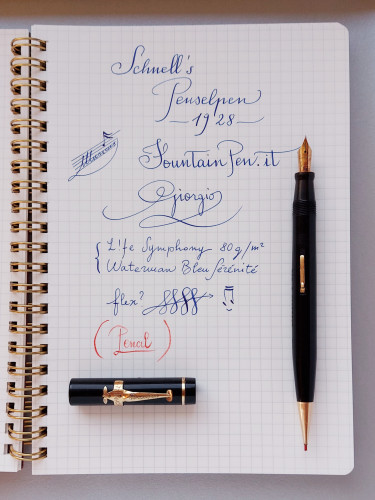 Schnell's
Penselpen
— 1928 —
FountainPen.it
Giorgio
L!fe Symphony 80g/m²
Waterman Bleu Sérénité
flex?
(Pencil)